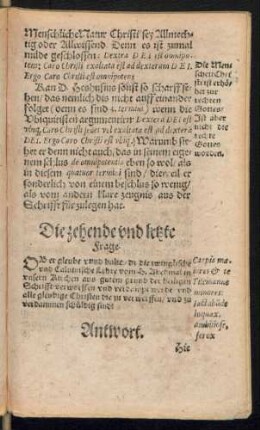 Menschliche Natur Christi sey Allmech-
tig oder Allwissend. Denn es ist zumal
milde geschlossen: Dextera DEI est omnipo-
tens; Caro Christi exaltata est ad dexteram DEI.
Ergo Caro Christi est omnipotens
Kan D. Heshusius sonst so scharff se-
hen/ das nemlich dis nicht auffeinander
folget (wenn es sind 4. termini) wenn die
Ubiquitisten argumentirn: Dextera DEI est
ubiq, Caro Christi sedet vel exaltata est ad dexterā
DEI. Ergo Caro Christi est ubiq;) Warumb sihet
er denn nicht auch/ das in seinem eige-
nem schlus de omnipotentia eben so wol/ als
in diesem quatuor termini sind/ die weil er
sonderlich von einem beschlus so wenig/
als vom andern klare zeugnis aus der
Schrifft für zulegen hat.
Die Men-
schheit Chri-
sti ist erhö-
het zur
rechten
Gottes/
Ist aber
nicht die
rechte
Gottes
worden.
Die zehende vnd letzte
Frage.
OB er gleube vnnd halte/ dz die zwinglische
vnd Caluinische Lehre vom H. Abetmal in
vnsern Kirchen aus gutem grund der heiligen
Schrifft verworffen vnd verdampt werde vnd
alle gleubige Christen die zu verwerffen/ vnd zu
verdammen schüldig sind?
inquax,
Antwort.
Hie